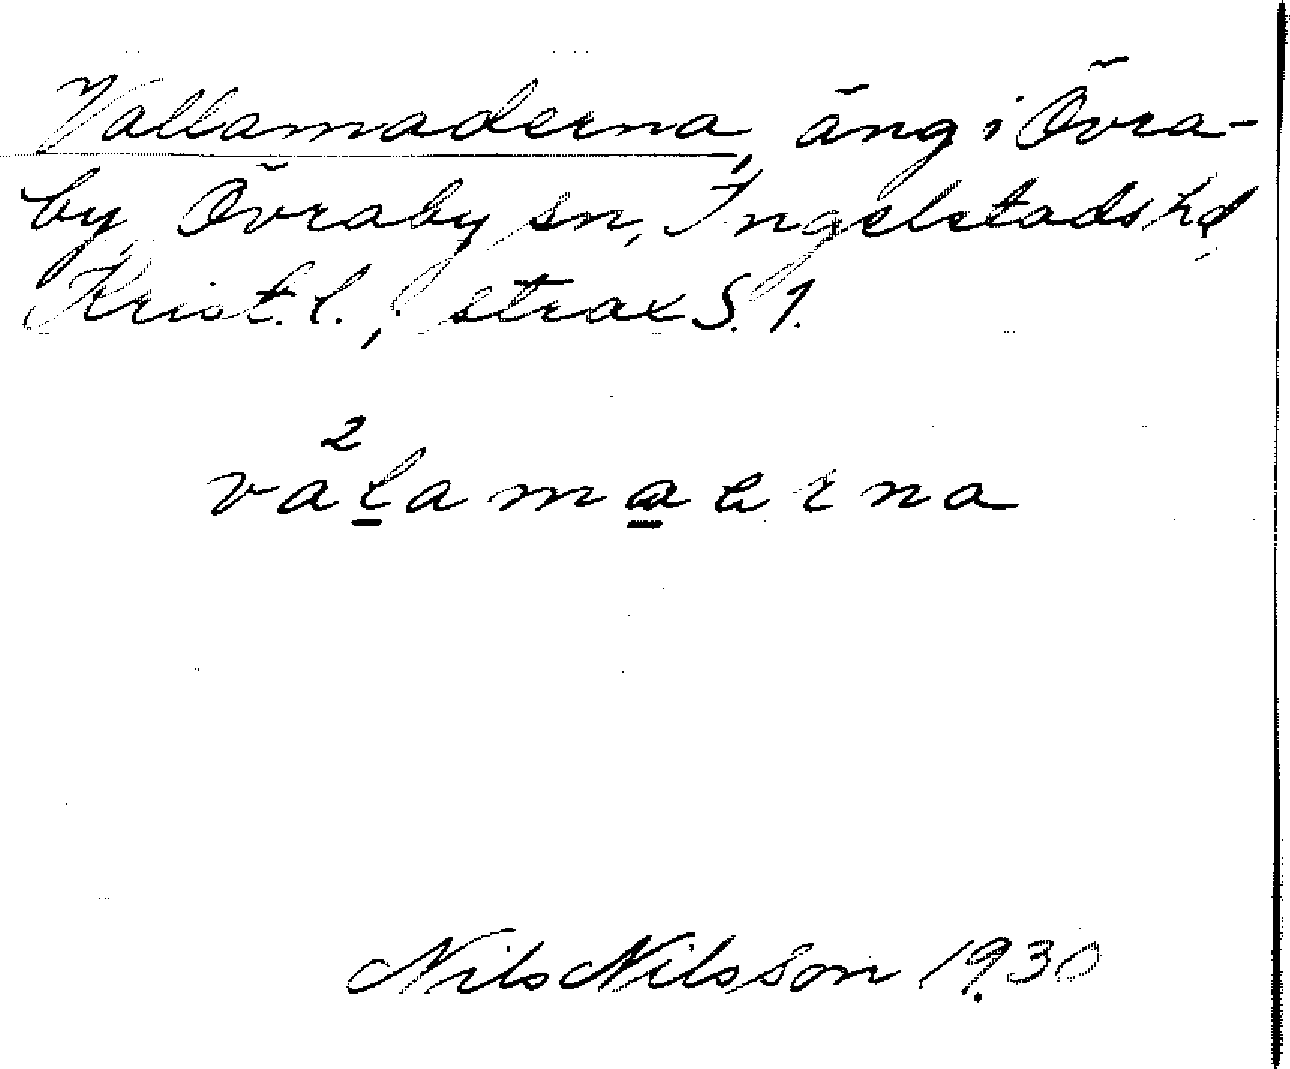 Vallamaderna, äng i Övra-
by, Övraby sn, Ingelstads hd,
Krist. l., strax S. 1.
2
valamaerna
Nils Nilsson 1930